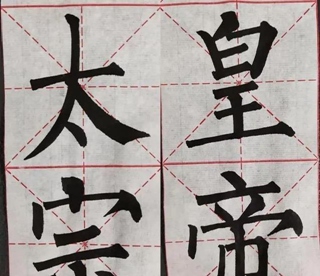 太皇
宗帝